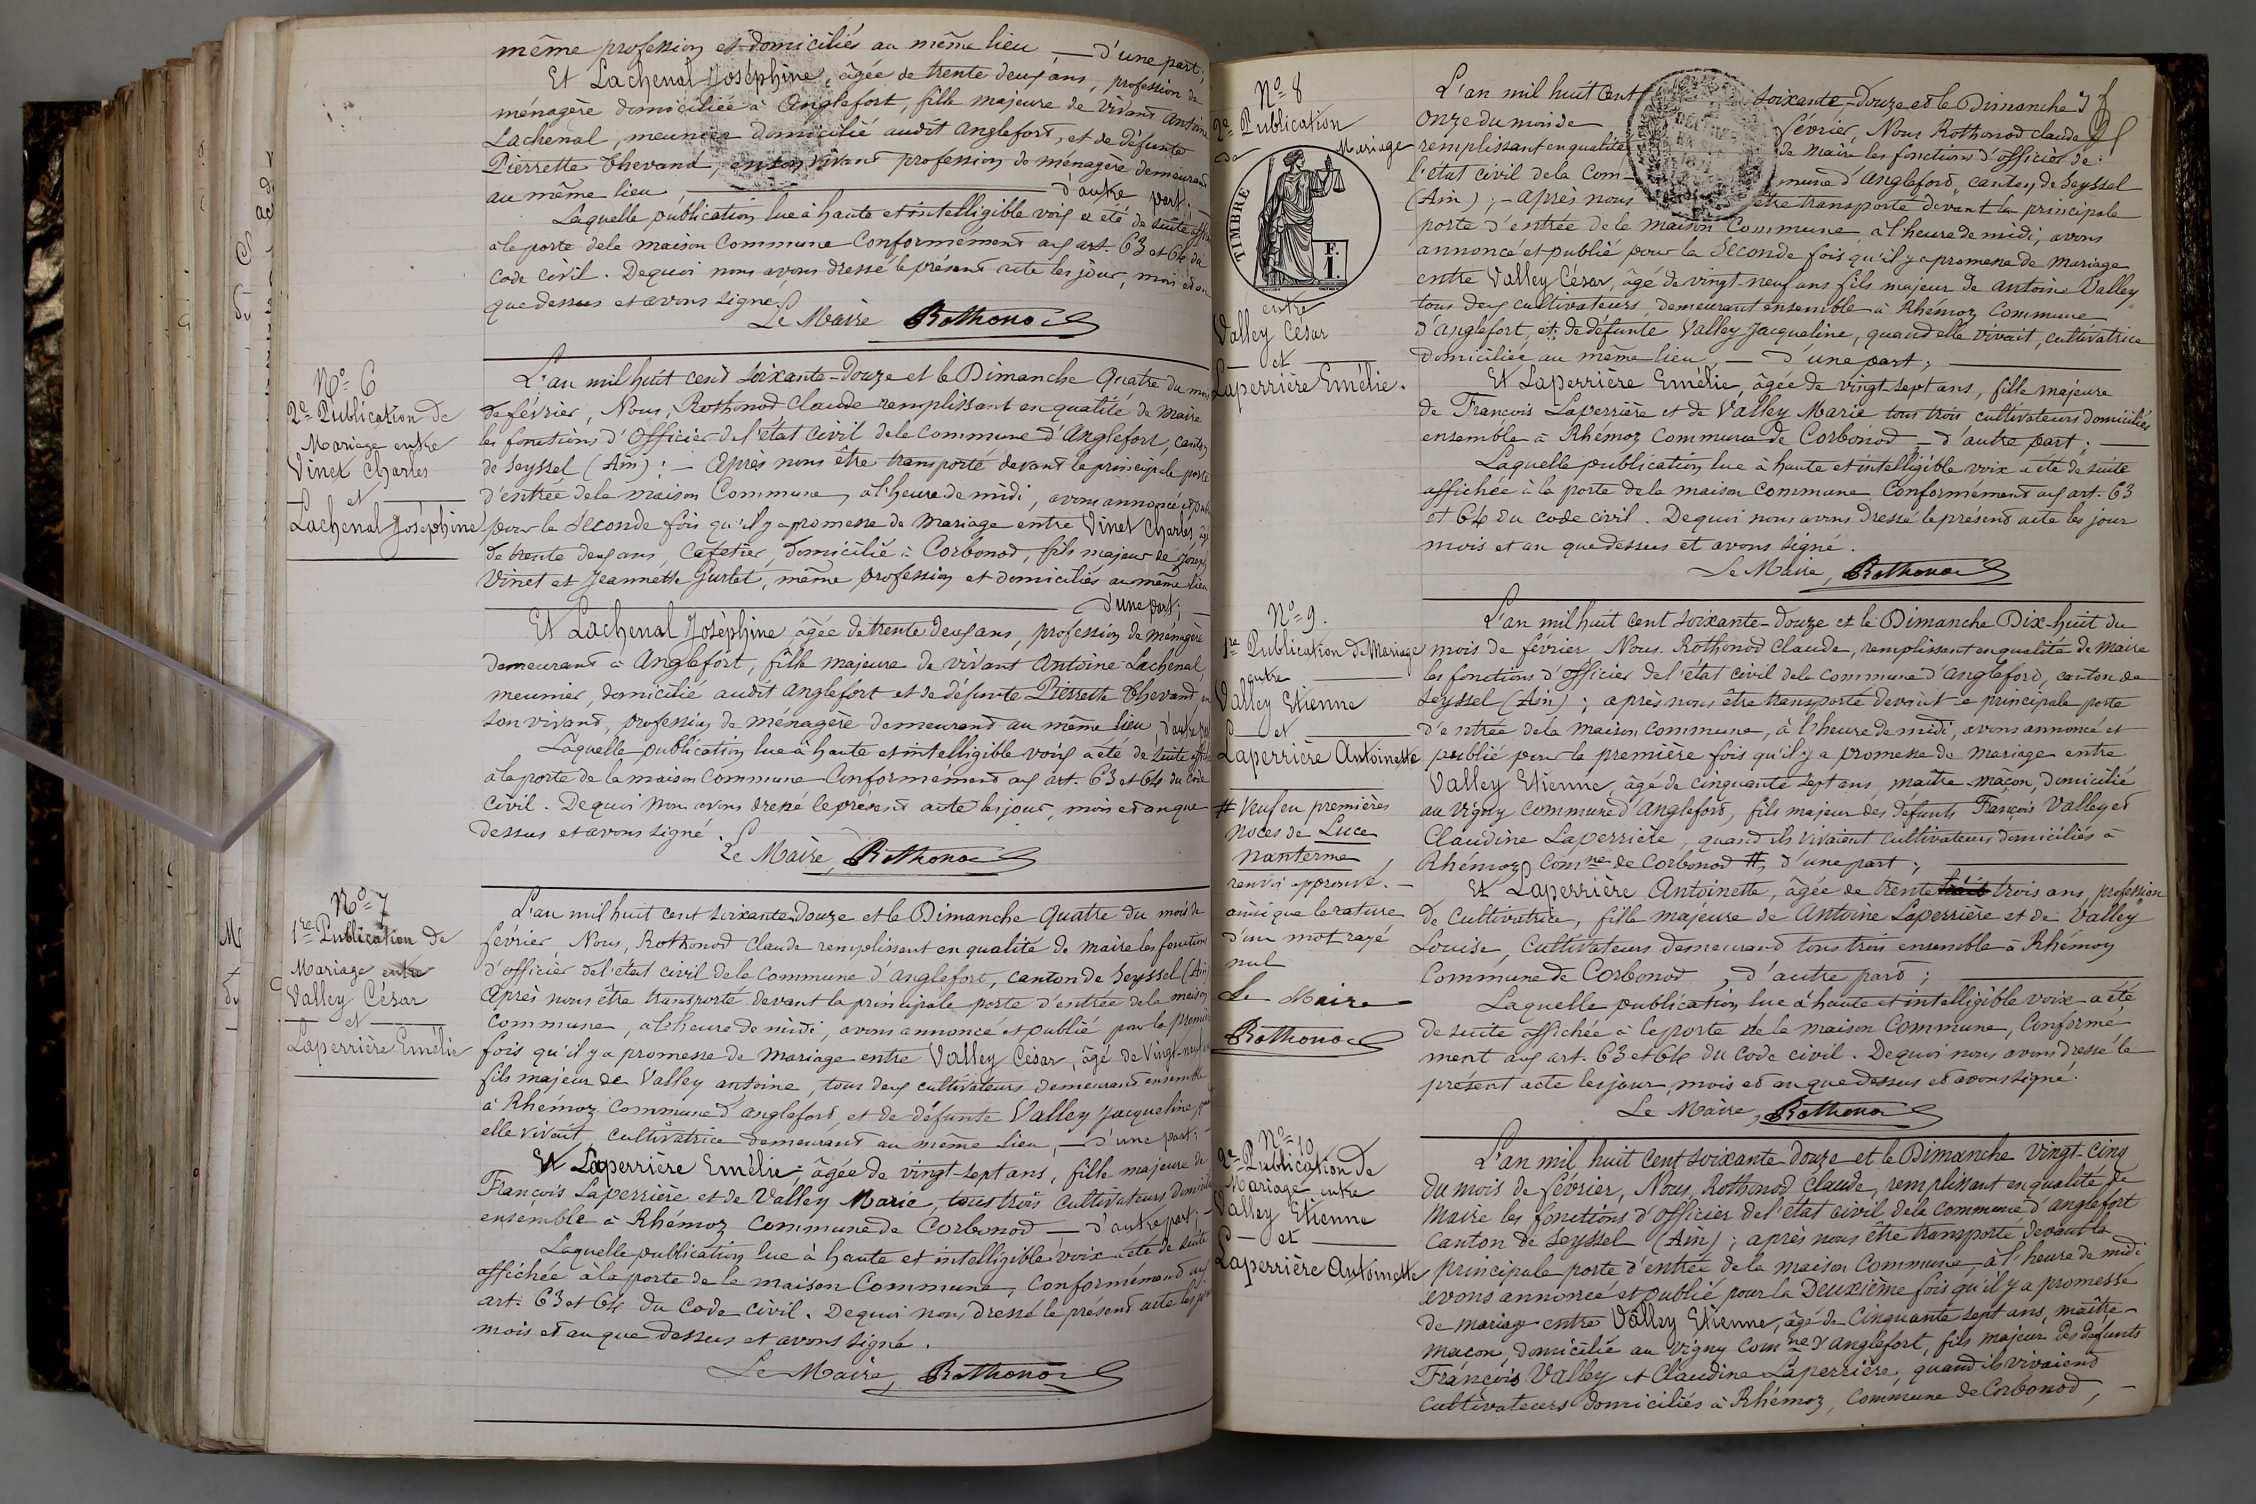 même profession et domiciliés au même lieu — d'une part;
Et Lachenal Joséphine, âgée de trente deux ans, profession de
ménagère domiciliée à Anglefort, fille majeure de vivant Antoine
Lachenal, meunier domicilié audit Anglefort, et de défunte
Pierrette Thevand, en son vivant profession de ménagère demeurant
au même lieu, — d'autre part.
Laquelle publication lue à haute et intelligible voix a été de suite
à la porte de la maison Commune Conformément aux art. 63 et 64 du
Code civil. De quoi nous avons dressé le présent acte les jour, mois et an
que dessus et avons signé.
Le Maire Rothonod
N° 6
2e Publication de
Mariage entre
Vinet Charles
et
Lachenal Joséphine
L'an mil huit cent soixante-Douze et le Dimanche Quatre du mois
de février, Nous, Rothonod Claude remplissant en qualité de Maire
les fonctions d'Officier de l'état civil de la Commune d'Anglefort, canton
de Seyssel (Ain): — Après nous être transporté devant la principale porte
d'entrée de la maison Commune, à l'heure de midi, avons annoncé et
pour la Seconde fois qu'il y a promesse de Mariage entre Vinet Charles, âgé
de trente deux ans, Cafetier, domicilié à Corbonod, fils majeur de Joseph
Vinet et Jeannette Gurlet, même profession et domiciliés au même lieu
d'une part;
Et Lachenal Joséphine âgée de trente deux ans, profession de ménagère
demeurant à Anglefort, fille majeure de vivant Antoine Lachenal,
meunier, domicilié audit Anglefort et de défunte Pierrette Thevand en
son vivant, profession de ménagère demeurant au même lieu, d'autre part
Laquelle publication lue à haute et intelligible voix a été de suite
à la porte de la maison Commune Conformément aux art. 63 et 64 du Code
Civil. De quoi nous avons dressé le présent acte les jour, mois et an que
dessus et avons signé.
Le Maire, Rothonod
N° 7
1re Publication de
Mariage entre
Valley César
et
Laperrière Emélie
L'an mil huit cent soixante-Douze et le Dimanche Quatre du mois de
février Nous, Rothonod Claude remplissant en qualité de maire les fonctions
d'officier de l'état civil de la Commune d'Anglefort, canton de Seyssel (Ain)
Après nous être transporté devant la principale porte d'entrée de la maison
Commune, à l'heure de midi, avons annoncé et publié pour la première
fois qu'il y a promesse de Mariage entre Valley César, âgé de Vingt-neuf
fils majeur de Valley Antoine, tous deux cultivateurs demeurant ensemble
à Rhémoz Commune d'Anglefort, et de défunte Valley Jacqueline, quand
elle vivait, cultivatrice demeurant au même lieu, — d'une part;
Et Laperrière Emélie; âgée de vingt-sept ans, fille majeure de
François Laperrière et de Valley Marie, tous trois cultivateurs
ensemble à Rhémoz Commune de Corbonod — d'autre part; —
Laquelle publication lue à haute et intelligible voix a été de suite
affichée à la porte de la maison Commune, Conformément aux
art. 63 et 64 du Code civil. De quoi nous dressé le présent acte les jour
mois et an que dessus et avons signé.
Le Maire, Rothonod
N° 8
2e Publication
de Mariage
TIMBRE
F.
1.
entre
Valley César
et
Laperrière Emélie.
L'an mil huit Cent soixante-Douze et le Dimanche
Onze du mois de février, Nous Rothonod Claude
remplissant en qualité de Maire les fonctions d'officier de
l'état civil de la Commune d'Anglefort, canton de Seyssel
(Ain); — Après nous être transporté devant la principale
porte d'entrée de la maison Commune à l'heure de midi, avons
annoncé et publié pour la Seconde fois qu'il y a promesse de Mariage
entre Valley César, âgé de vingt-neuf ans fils majeur de Antoine Valley
tous deux cultivateurs demeurant ensemble à Rhémoz Commune
d'Anglefort, et de défunte Valley Jacqueline, quand elle vivait, cultivatrice
domiciliée au même lieu — d'une part;
Et Laperrière Emélie, âgée de vingt-sept ans, fille majeure
de François Laperrière et de Valley Marie tous trois cultivateurs domiciliés
ensemble à Rhémoz Commune de Corbonod — d'autre part. —
Laquelle publication lue à haute et intelligible voix a été de suite
affichée à la porte de la maison Commune Conformément aux art. 63
et 64 du code civil. De quoi nous avons dressé le présent acte les jour
mois et an que dessus et avons signé.
Le Maire, Rothonod
N° 9.
1re Publication de Mariage
entre
Valley Etienne
et
Laperrière Antoinette
# Veuf en premières
noces de Luce
Nanterme
renvoi approuvé. —
ainsi que la rature
d'un mot rayé
nul
Le Maire
Rothonod
L'an mil huit cent soixante-Douze et le Dimanche Dix-huit du
mois de février Nous Rothonod Claude, remplissant en qualité de Maire
les fonctions d'officier de l'état civil de la Commune d'Anglefort, canton de
Seyssel (Ain); après nous être transporté devant la principale porte
d'entrée de la maison Commune, à l'heure de midi, avons annoncé et
publié pour la première fois qu'il y a promesse de mariage entre
Valley Etienne, âgé de cinquante sept ans, maître-maçon, Domicilié
au Vigny Commune d'Anglefort, fils majeur des défunts François Valley et
Claudine Laperrière, quand ils vivaient cultivateurs domiciliés à
Rhémoz, Comne de Corbonod #, d'une part;
Et Laperrière Antoinette, âgée de trente trois ans, profession
de Cultivatrice, fille majeure de Antoine Laperrière et de Valley
Louise, Cultivateurs demeurant tous trois ensemble à Rhémoz
Commune de Corbonod, d'autre part;
Laquelle publication lue à haute et intelligible voix a été
de suite affichée à la porte de la maison Commune, Conformé
ment aux art. 63 et 64 du Code civil. De quoi nous avons dressé le
présent acte les jour, mois et an que dessus et avons signé.
Le Maire, Rothonod
N° 10
2e Publication de
Mariage entre
Valley Etienne
et
Laperrière Antoinette
L'an mil huit cent soixante-douze et le Dimanche Vingt-cinq
du mois de février, Nous, Rothonod Claude, remplissant en qualité de
Maire les fonctions d'Officier de l'état civil de la commune d'Anglefort
Canton de Seyssel (Ain); après nous être transporté devant la
principale porte d'entrée de la maison Commune, à l'heure de midi
avons annoncé et publié pour la Deuxième fois qu'il y a promesse
de mariage entre Valley Etienne, âgé de Cinquante sept ans, maître-
maçon, domicilié au Vigny Comne d'Anglefort, fils majeur des défunts
François Valley et Claudine Laperrière, quand ils vivaient
Cultivateurs domiciliés à Rhémoz, Commune de Corbonod, —